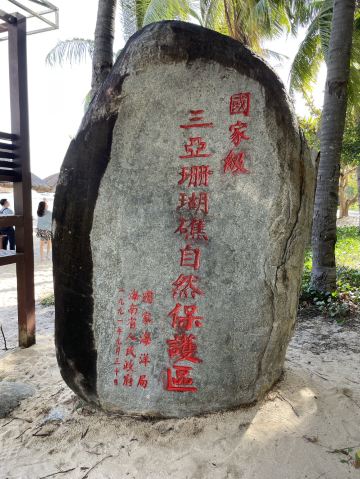 國家級
三亞珊瑚礁自然保護區
國家海洋局
海南省人民政府
一九九一年九月三十日